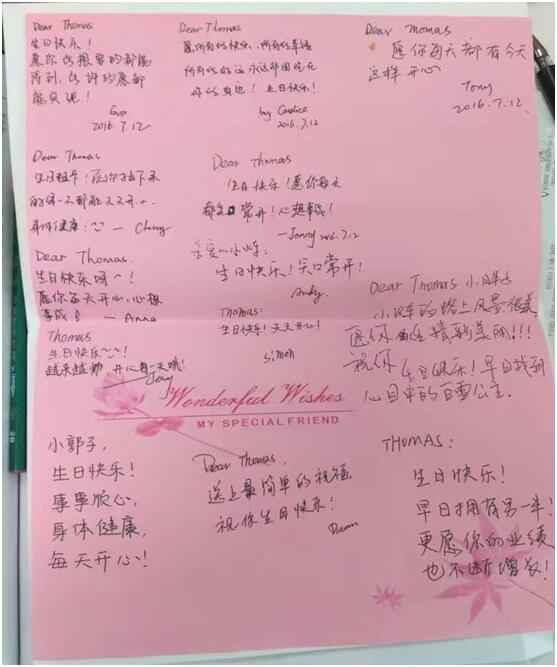 Dear Thomas
生日快乐！
愿你所想要的都能
得到，所许的愿都
能实现！
Eva
2016.7.12
Dear Thomas
愿所有的快乐、所有的幸福
所有的好运永远围绕在
你的身边！生日快乐！
by Candice
2016.7.12
Dear Thomas
愿你每天都有今天
这样开心
Tony
2016.7.12.
Dear Thomas
生日快乐！愿你接下来
的每一天都能天天开心.
身体健康.
— Cherry
Dear Thomas
生日快乐！愿你每天
都笑口常开！心想事成！
—Jenny 2016.7.12
亲爱的小火车：
生日快乐！笑口常开！
Andy.
Dear Thomas.
生日快乐呀～！
愿你每天开心，心想
事成！
— Anna
Thomas:
生日快乐！天天开心！
Simon
Dear Thomas 小胖子
小火车的路上风景很美
愿你的人生精彩美丽!!!
祝你 生日快乐！早日找到
心目中的白雪公主.
Thomas
生日快乐～～！
越来越帅 开心每一天哦！
Wonderful Wishes
MY SPECIAL FRIEND
小郭子，
生日快乐！
事事顺心，
身体健康，
每天开心！
Dear Thomas,
送上最简单的祝福，
祝你生日快乐！
THOMAS:
生日快乐！
早日拥有另一半！
更愿你的业绩
也不断增长！